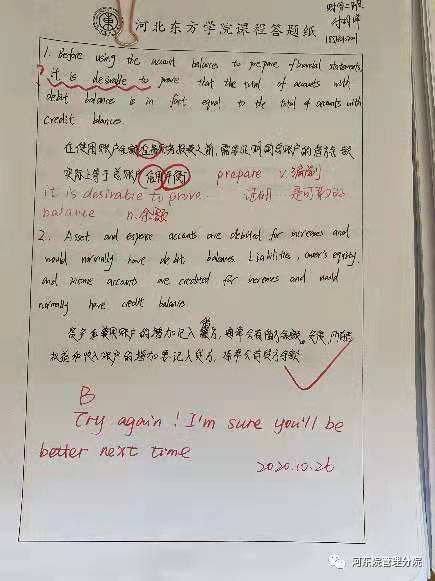 河北东方学院课程答题纸
1. Before using the account balances to prepare financial statements,
it is desirable to prove that the total of accounts with
debit balances is in fact equal to the total of accounts with
credit blances.
在使用账户余额 之前,需要证明 账户的
实际上等于 账户 信用平衡
prepare v.编制
it is desiratie to prove 证明 是可取的
balance n.余额
2. Asset and expense accounts are debited for increases and
would normally have debit balances. Liabilities, owner's equity,
and income accounts are credited for increases and would
normally have credit balance.
资产和费用账户的增加记入借方,通常会有借方余额。负债,所有者
权益和收入账户的增加 记入贷方,通常会有贷方余额
B
Try again! I'm sure you'll be
better next time
2020.10.26
河东院管理分院